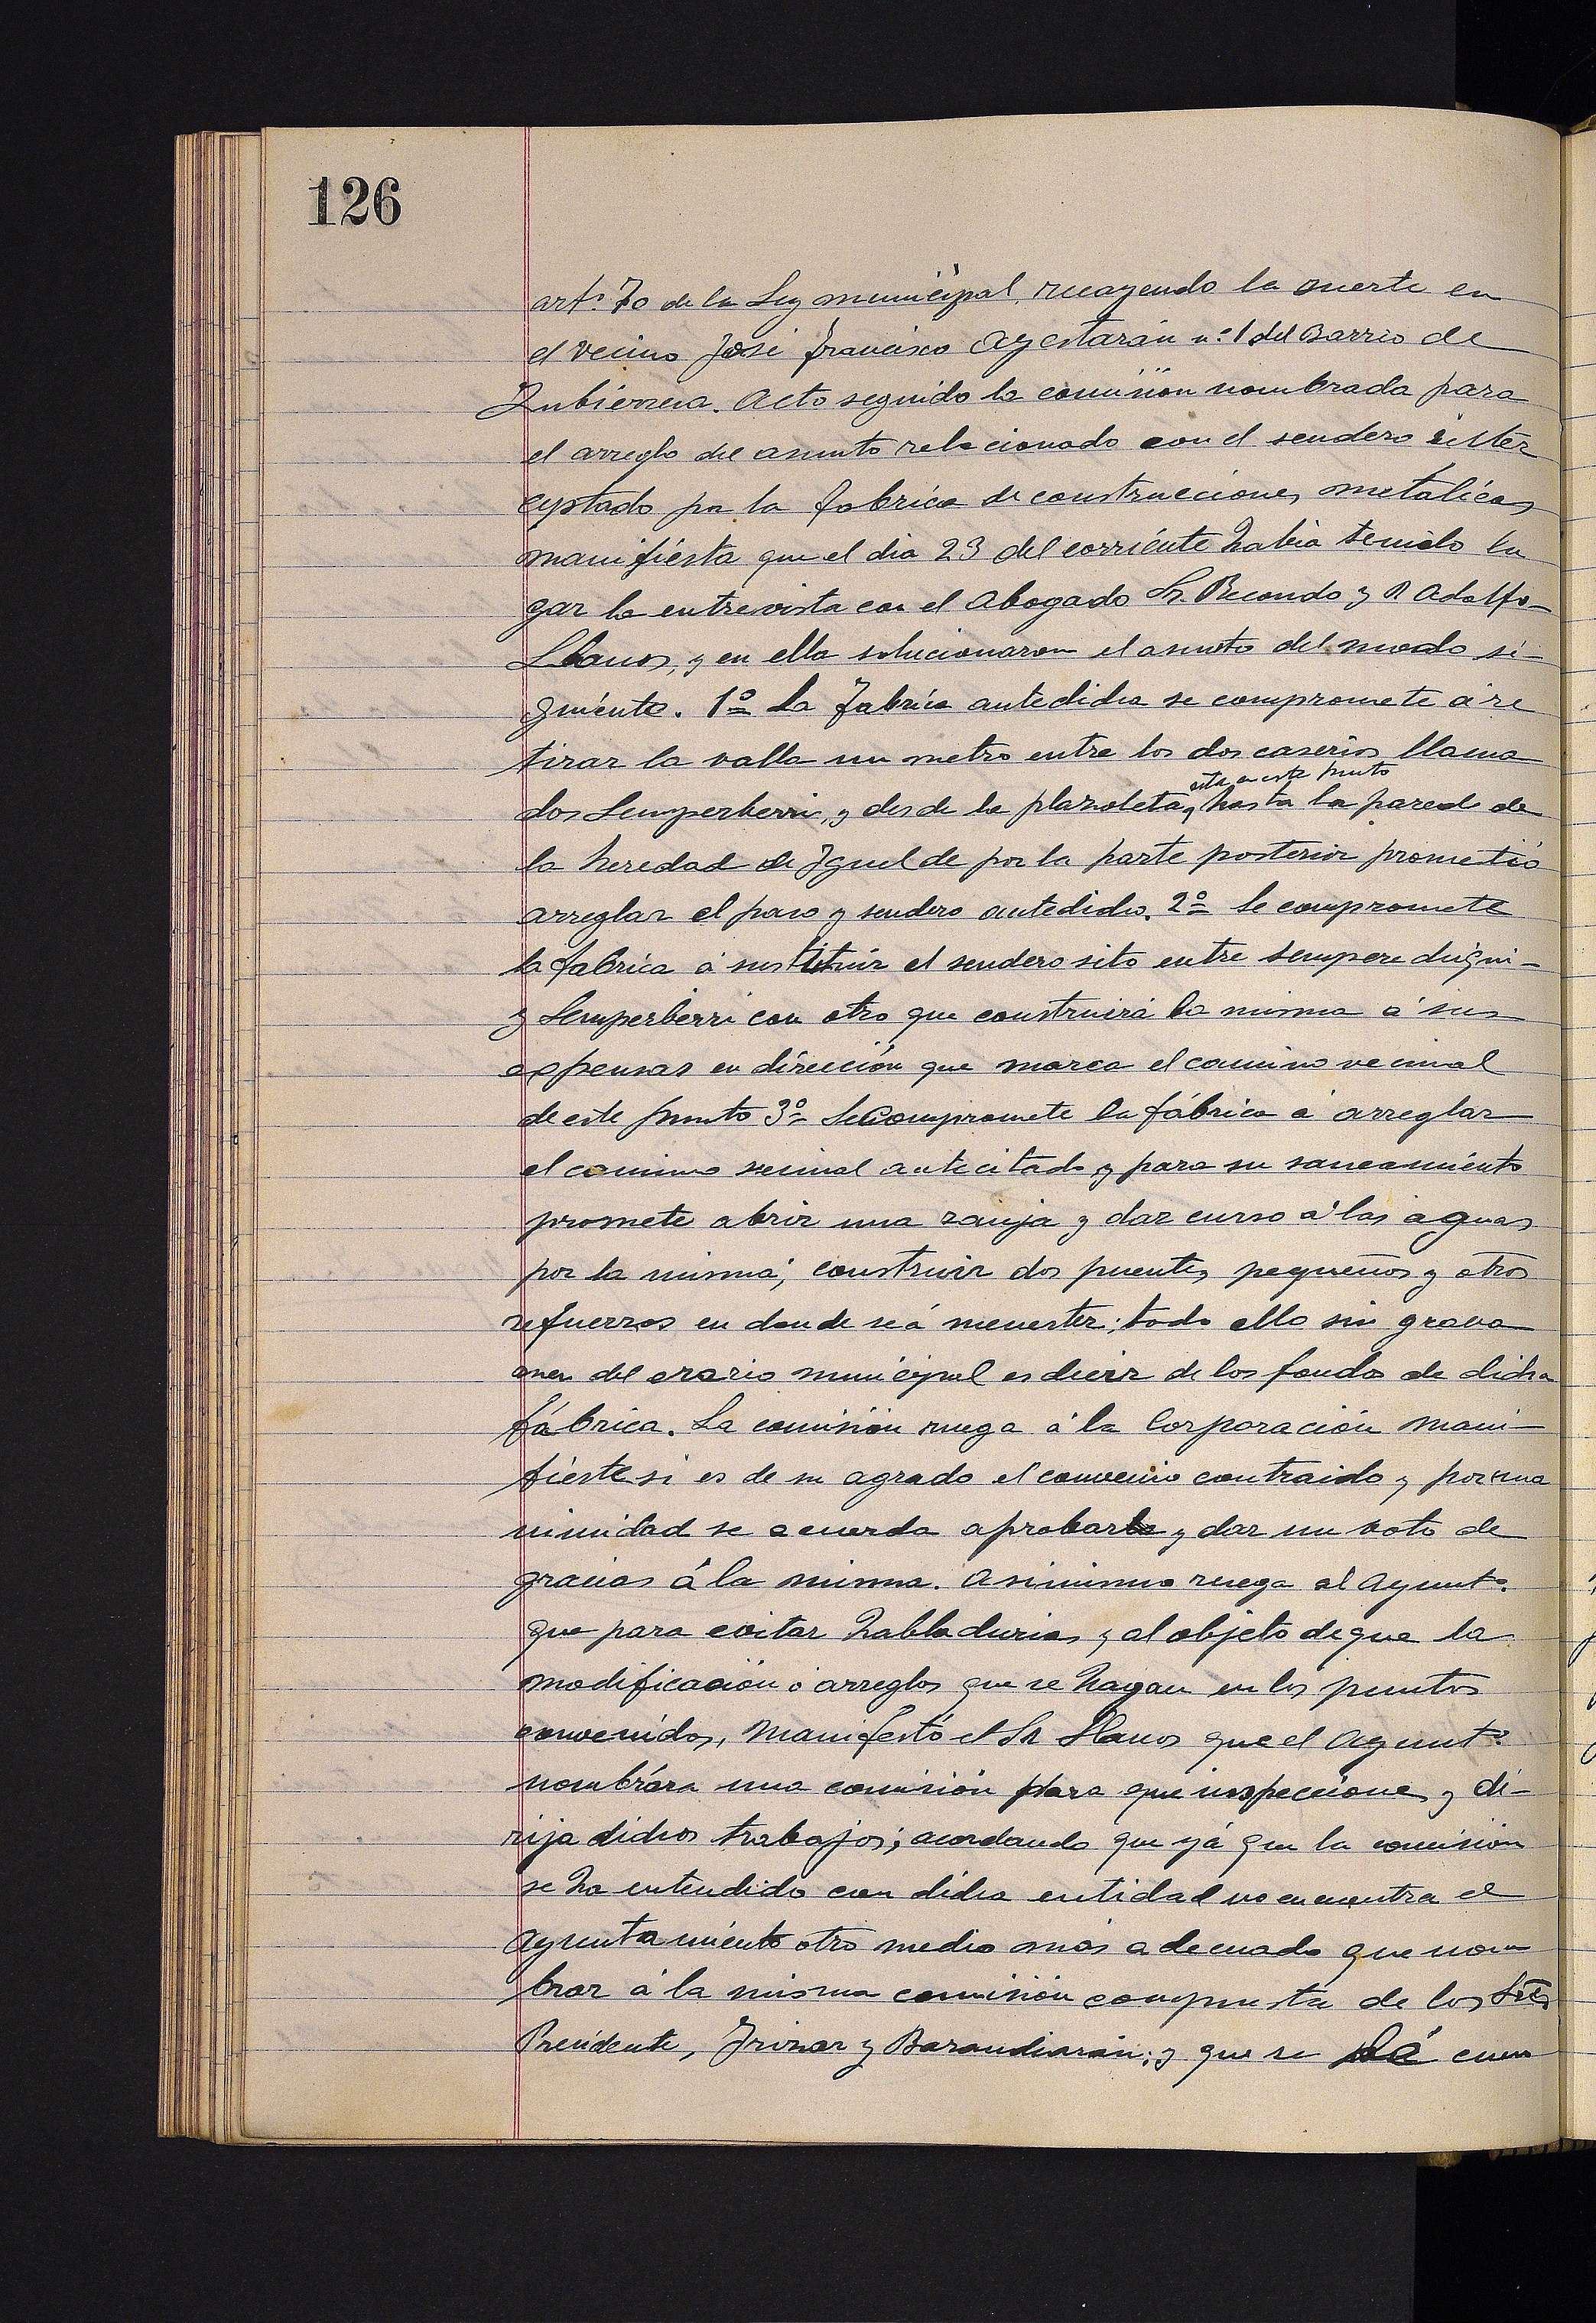 126
art.º 70 de la Ley municipal, recayendo la suerte en
el vecino José Francisco Ayestarán n.º 1 del Barrio de
Zubierreca. Acto seguido la comisión nombrada para
el arreglo del asunto relacionado con el sendero inter
ceptado por la fabrica de construcciones metalicas
manifiesta que el dia 23 del corriente habia tenido lu
gar la entrevista con el Abogado Sr. Recondo y D. Adolfo
Llanos, y en ella solucionaron el asunto del modo si-
guiente. 1º La Fabrica antedicha se compromete á re
tirar la valla un metro entre los dos caserios llama
dos Semperberri, y desde la plazoleta, hasta la pared de
sita en este punto
la heredad de Igueldo por la parte posterior prometió
arreglar el paso y sendero antedicho. 2º Se compromete
la fabrica á sustituir el sendero sito entre Sempere
y Semperberri con otro que construirá la misma á sus
expensas en dirección que marca el camino vecinal
de este punto 3º Se compromete la fábrica á arreglar
el camino vecinal antecitado y para su saneamiento
promete abrir una zanja y dar curso á las aguas
por la misma, construir dos puentes pequeños y otros
refuerzos en donde seá menester; todo ello sin grava
men del erario municipal es decir de los fondos de dicha
fábrica. La comisión ruega á la Corporación mani-
fieste si es de su agrado el convenio contraido y por una
nimidad se acuerda aprobarlo y dar un voto de
gracias á la misma. Asimismo ruega al Ayunt.º
que para evitar habladurias y al objeto de que la
modificación ó arreglos que se hagan en los puntos
convenidos, manifestó el Sr Llanos que el Ayunt.º
nombrára una comisión para que inspeccione y di-
rija dichos trabajos; acordando que yá que la comisión
se ha entendido con dicha entidad no encuentra el
Ayuntamiento otro medio más adecuado que nom
brar á la misma comisión compuesta de los Sres
Presidente, Irizar y Barandiarán; y que se dé cuen